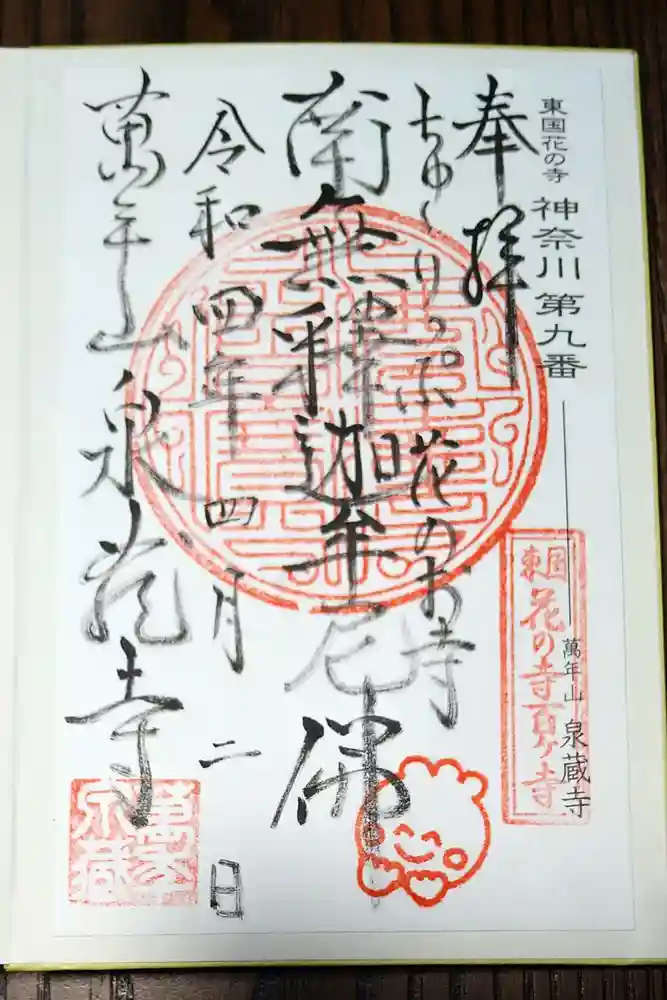 東国花の寺 神奈川第九番 萬年山 泉蔵寺
奉拝
ちゅーりっぷ花のお寺
南無釋迦牟尼佛
令和四年四月二日
萬年山泉蔵寺
東国花の寺百ヶ寺
萬年山
泉蔵寺